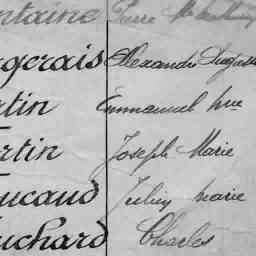 ntaine Pierre
gerais Alexandre Auguste
tin Emmanuel hue
rtin Joseph Marie
ucaud Julien marie
uchard Charles